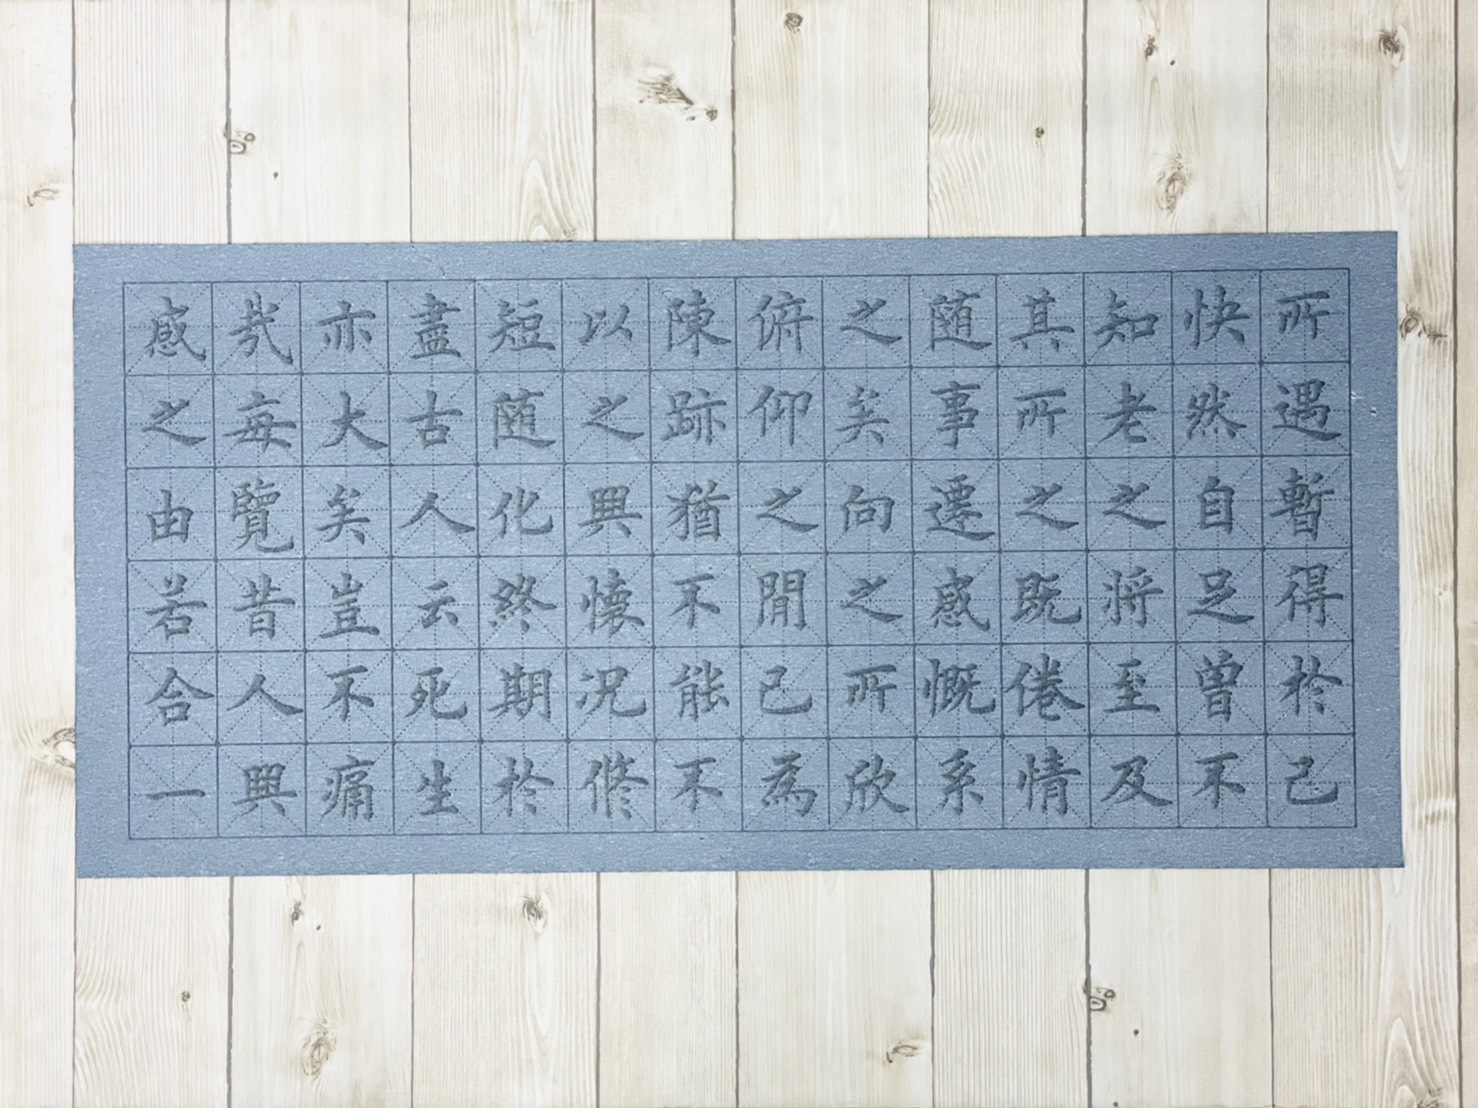 所遇暫得於己
快然自足曾不
知老之將至及
其所之既倦情
随事遷感慨系
之矣向之所欣
俯仰之閒已為
陳跡猶不能不
以之興懷況修
短随化終期於
盡古人云死生
亦大矣豈不痛
哉每覽昔人興
感之由若合一